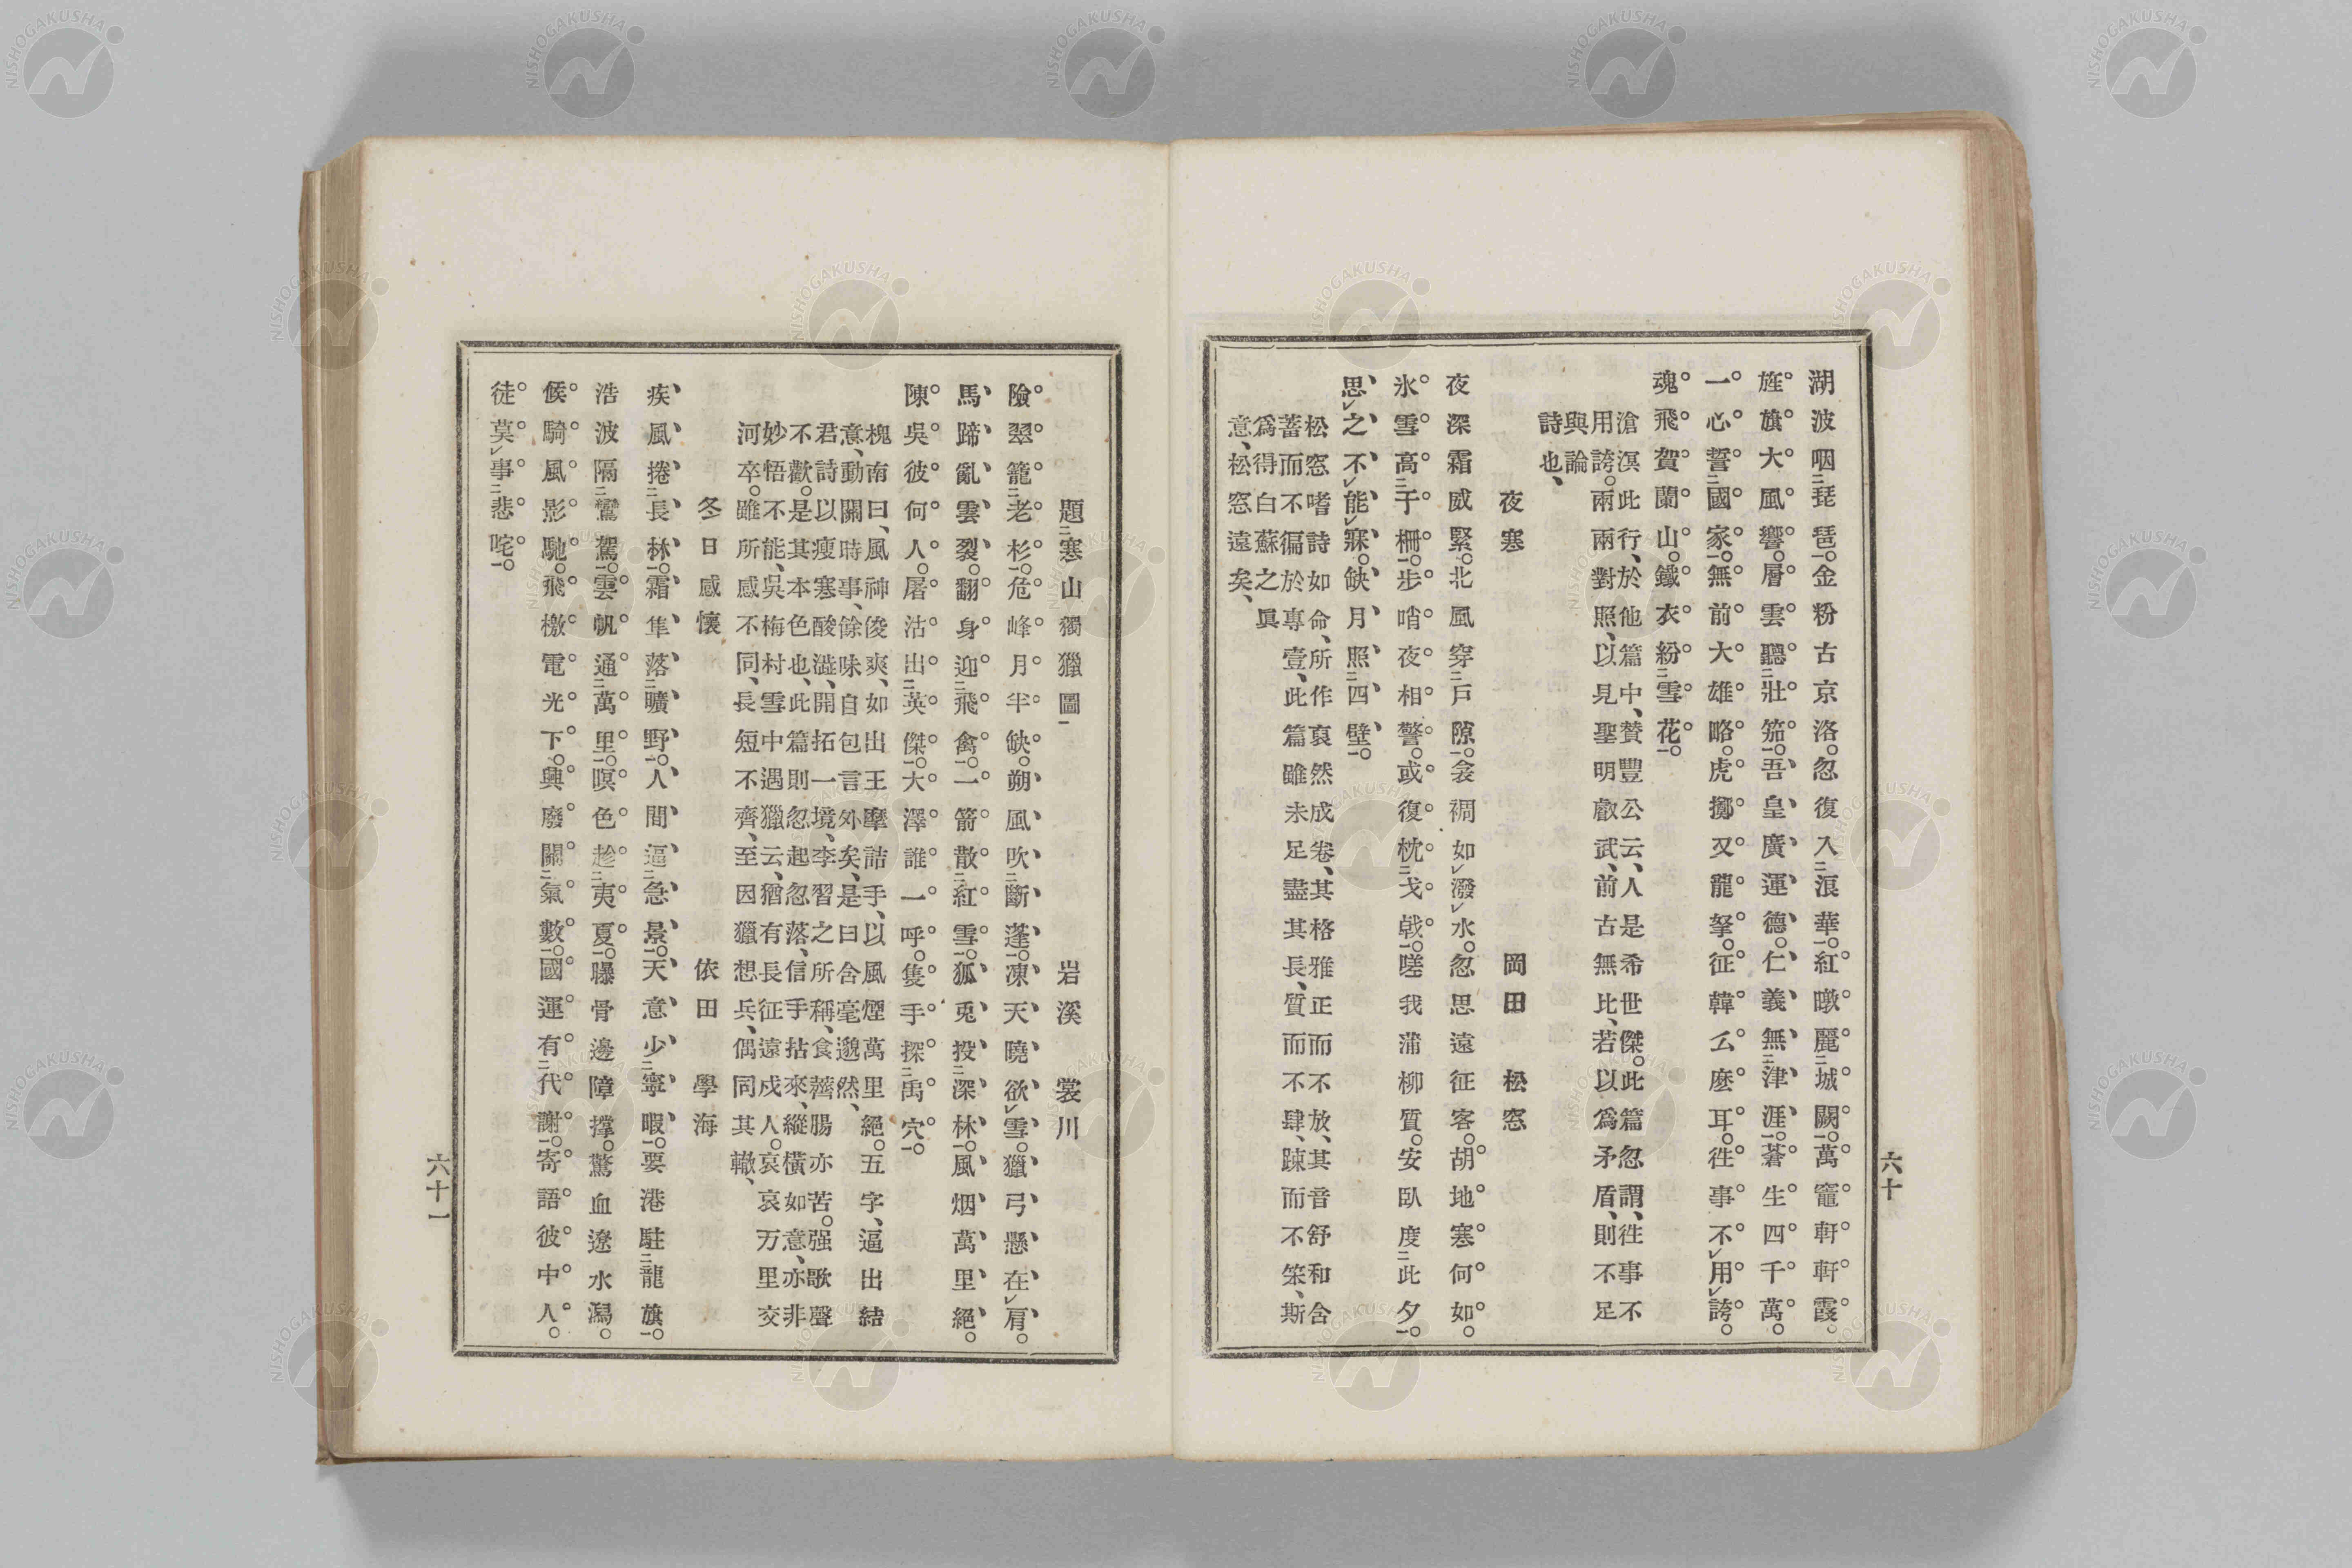 湖波咽琵琶。金粉古京洛。忽復入浪華。紅暾麗城闕。萬竈軒軒霞。
旌旗大風響。層雲聽壯笳。吾皇廣運德。仁義無津涯。蒼生四千萬。
一心誓國家。無前大雄略。虎擲又龍拏。征韓么麽耳。徃事不用誇。
魂飛賀蘭山。鐵衣紛雪花。
滄溟此行、於他篇中、贊豐公云、人是希世傑。此篇忽謂、徃事不
用誇。兩兩對照、以見聖明叡武、前古無比、若以爲矛盾、則不足
與論
詩也、
夜寒　岡田松窓
夜深霜威緊。北風穿戶隙。衾裯如潑水。忽思遠征客。胡地寒何如。
氷雪高于柵。步哨夜相警。或復枕戈戟。嗟我蒲柳質。安臥度此夕。
思之不能寐。缺月照四壁。
松窓嗜詩如命、所作裒然成卷、其格雅正而不放、其音舒和含
蓄而不徧於專壹、此篇雖未足盡其長、質而不肆、踈而不笨、斯
爲得白蘇之眞
意、松窓遠矣、
六十
題寒山獨獵圖　岩溪裳川
險翠籠老杉。危峰月半缺。朔風吹斷蓬。凍天曉欲雪。獵弓懸在肩。
馬蹄亂雲裂。翻身迎飛禽。一箭散紅雪。狐兎投深林。風烟萬里絕。
陳吳彼何人。屠沽出英傑。大澤誰一呼。隻手探禹穴。
槐南曰、風神俊爽、如出王摩詰手、以風煙萬里絕。五字、逼出結
意、動關時事、餘味自包言外矣、是曰含毫邈然、
君詩以瘦寒酸澁、開拓一境、李習之所稱、食薺腸亦苦。强歌聲
不歡。是其本色也、此篇則忽起忽落、信手拈來、縱橫如意、亦非
妙悟不能、吳梅村雪中遇獵云、猶有長征遠戍人。哀哀万里交
河卒。雖所感不同、長短不齊、至因獵想兵、偶同其轍、
冬日感懷　依田學海
疾風捲長林。霜隼落曠野。人間逼急景。天意少寧暇。要港駐龍旗。
浩波隔鸞駕。雲帆通萬里。暝色趁夷夏。曝骨邊障撑。驚血遼水瀉。
候騎風影馳。飛檄電光下。興廢關氣數。國運有代謝。寄語彼中人。
徒莫事悲咤。
六十一